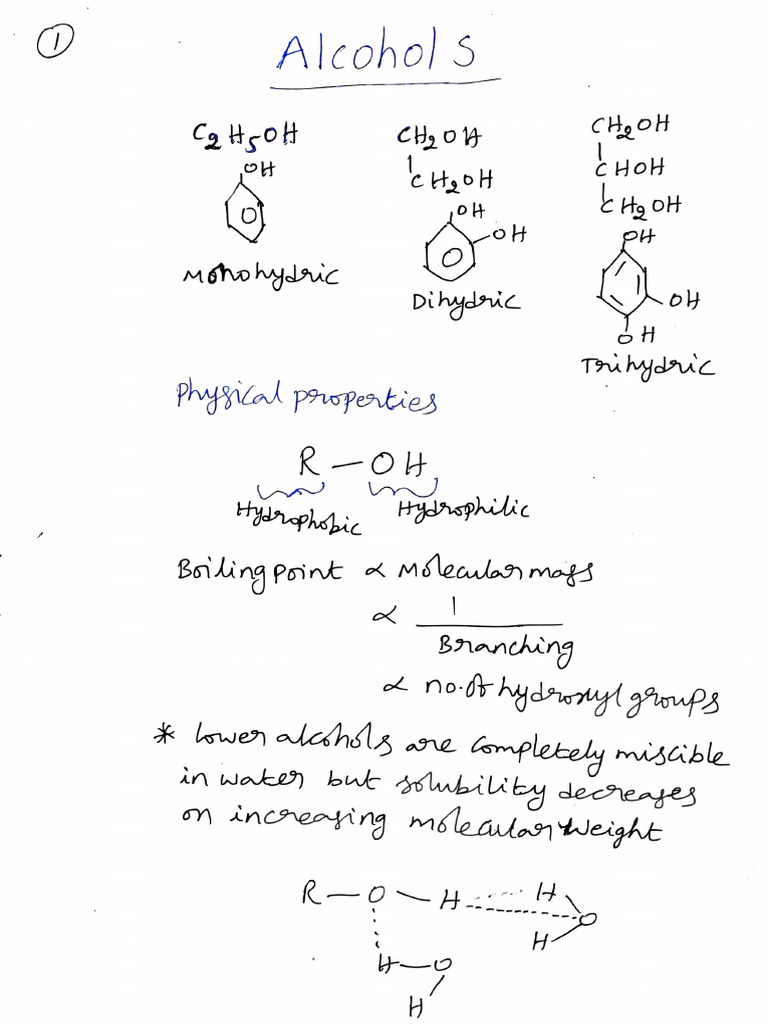 1
Alcohols
C2H5OH
OH
Monohydric
CH2OH
CH2OH
OH
OH
Dihydric
CH2OH
CHOH
CH2OH
OH
OH
OH
Trihydric
Physical properties
R — OH
Hydrophobic Hydrophilic
Boiling point ∝ Molecular mass
∝ 1
Branching
∝ no. of hydroxyl groups
* lower alcohols are completely miscible
in water but solubility decreases
on increasing molecular weight
R — O — H H
O
H
H — O
H